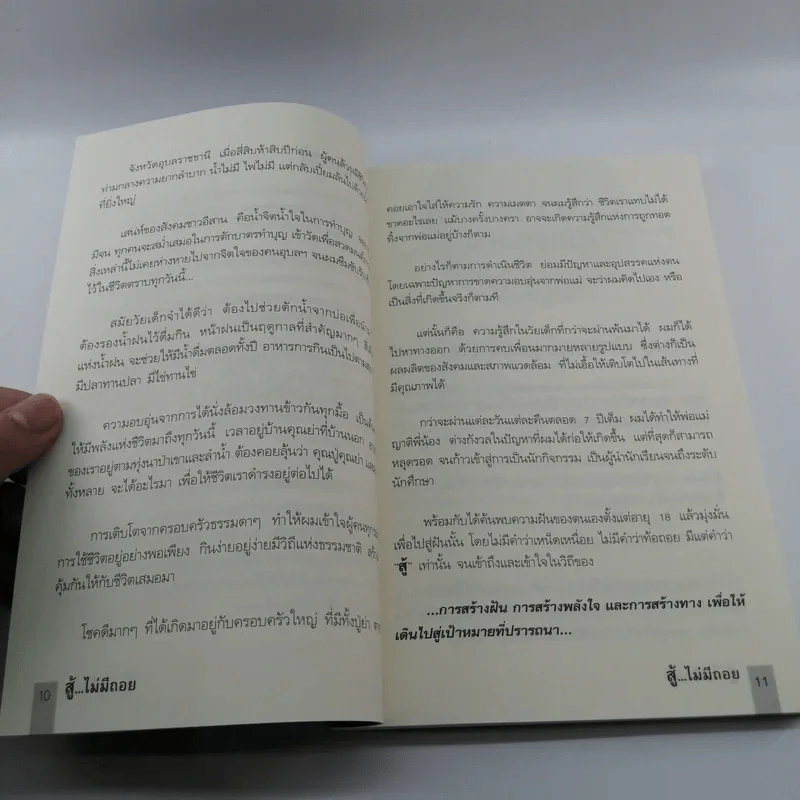 จังหวัดอุบลราชธานี เมื่อสี่สิบห้าสิบปีก่อน ผู้คนล้วน
ท่ามกลางความยากลำบาก น้ำไม่มี ไฟไม่มี แต่กลับเปี่ยมล้นไปด้วย
ที่ยิ่งใหญ่
เสน่ห์ของสังคมชาวอีสาน คือน้ำจิตน้ำใจในการทำบุญ
มีจน ทุกคนจะสม่ำเสมอในการตักบาตรทำบุญ เข้าวัดเพื่อสวดมนต์
สิ่งเหล่านี้ไม่เคยห่างหายไปจากจิตใจของคนอุบลฯ จนผมซึมซับ
ไว้ในชีวิตตราบทุกวันนี้...
สมัยวัยเด็กจำได้ดีว่า ต้องไปช่วยตักน้ำจากบ่อเพื่อ
ต้องรองน้ำฝนไว้ดื่มกิน หน้าฝนเป็นฤดูกาลที่สำคัญมากๆ
แห่งน้ำฝน จะช่วยให้มีน้ำดื่มตลอดทั้งปี อาหารการกินเป็นไปตาม
มีปลาทานปลา มีไข่ทานไข่
ความอบอุ่นจากการได้นั่งล้อมวงทานข้าวกันทุกมื้อ
ให้มีพลังแห่งชีวิตมาถึงทุกวันนี้ เวลาอยู่บ้านคุณย่าที่บ้านนอก
ของเราอยู่ตามทุ่งนาป่าเขาและลำน้ำ ต้องคอยลุ้นว่า คุณปู่คุณย่า
ทั้งหลาย จะได้อะไรมา เพื่อให้ชีวิตเราดำรงอยู่ต่อไปได้
การเติบโตจากครอบครัวธรรมดาๆ ทำให้ผมเข้าใจผู้คน
การใช้ชีวิตอยู่อย่างพอเพียง กินง่ายอยู่ง่ายมีวิถีแห่งธรรมชาติ
คุ้มกันให้กับชีวิตเสมอมา
โชคดีมากๆ ที่ได้เกิดมาอยู่กับครอบครัวใหญ่ ที่มีทั้งปู่ย่า
10 สู้...ไม่มีถอย
คอยเอาใจใส่ให้ความรัก ความเมตตา จนผมรู้สึกว่า ชีวิตเราแทบไม่ได้
ขาดอะไรเลย แม้บางครั้งบางครา อาจจะเกิดความรู้สึกแห่งการถูกทอด
ทิ้งจากพ่อแม่อยู่บ้างก็ตาม
อย่างไรก็ตามการดำเนินชีวิต ย่อมมีปัญหาและอุปสรรคแห่งตน
โดยเฉพาะปัญหาการขาดความอบอุ่นจากพ่อแม่ จะว่าผมคิดไปเอง หรือ
เป็นสิ่งที่เกิดขึ้นจริงก็ตามที
แต่นั้นก็คือ ความรู้สึกในวัยเด็กที่กว่าจะผ่านพ้นมาได้ ผมก็ได้
ไปหาทางออก ด้วยการคบเพื่อนมากมายหลายรูปแบบ ซึ่งต่างก็เป็น
ผลผลิตของสังคมและสภาพแวดล้อม ที่ไม่เอื้อให้เติบโตไปในเส้นทางที่
มีคุณภาพได้
กว่าจะผ่านแต่ละวันแต่ละคืนตลอด 7 ปีเต็ม ผมได้ทำให้พ่อแม่
ญาติพี่น้อง ต่างกังวลในปัญหาที่ผมได้ก่อให้เกิดขึ้น แต่ที่สุดก็สามารถ
หลุดรอด จนก้าวเข้าสู่การเป็นนักกิจกรรม เป็นผู้นำนักเรียนจนถึงระดับ
นักศึกษา
พร้อมกับได้ค้นพบความฝันของตนเองตั้งแต่อายุ 18 แล้วมุ่งมั่น
เพื่อไปสู่ฝันนั้น โดยไม่มีคำว่าเหน็ดเหนื่อย ไม่มีคำว่าท้อถอย มีแต่คำว่า
"สู้" เท่านั้น จนเข้าถึงและเข้าใจในวิถีของ
...การสร้างฝัน การสร้างพลังใจ และการสร้างทาง เพื่อให้
เดินไปสู่เป้าหมายที่ปรารถนา...
สู้...ไม่มีถอย 11